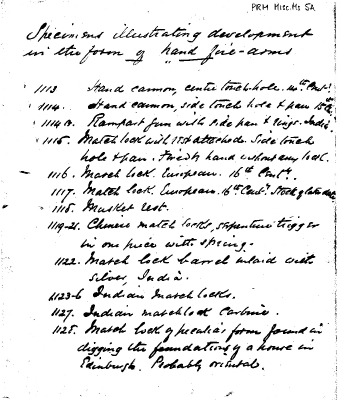 PRM Misc. Ms 5A
Specimens illustrating development
in the form of hand fire-arms
1113 Hand cannon, centre touch-hole. 14th Centy.
1114. Hand cannon, side touch hole & pan 15th
1114a. Rampart gun with side pan & rings. India
1115. Match lock with rest attached. Side touch
hole & pan. Fired by hand without any lock.
1116. Match lock. European. 16th Centy.
1117. Match lock. European. 16th Centy. Stock of later date
1118. Musket rest.
1119-21. Chinese match locks, serpentine trigger
in one piece with spring.
1122. Match lock barrel inlaid with
silver, India.
1123-6 Indian Match locks.
1127. Indian matchlock carbine.
1125. Match lock of peculiar form found in
digging the foundations of a house in
Edinburgh. Probably oriental.